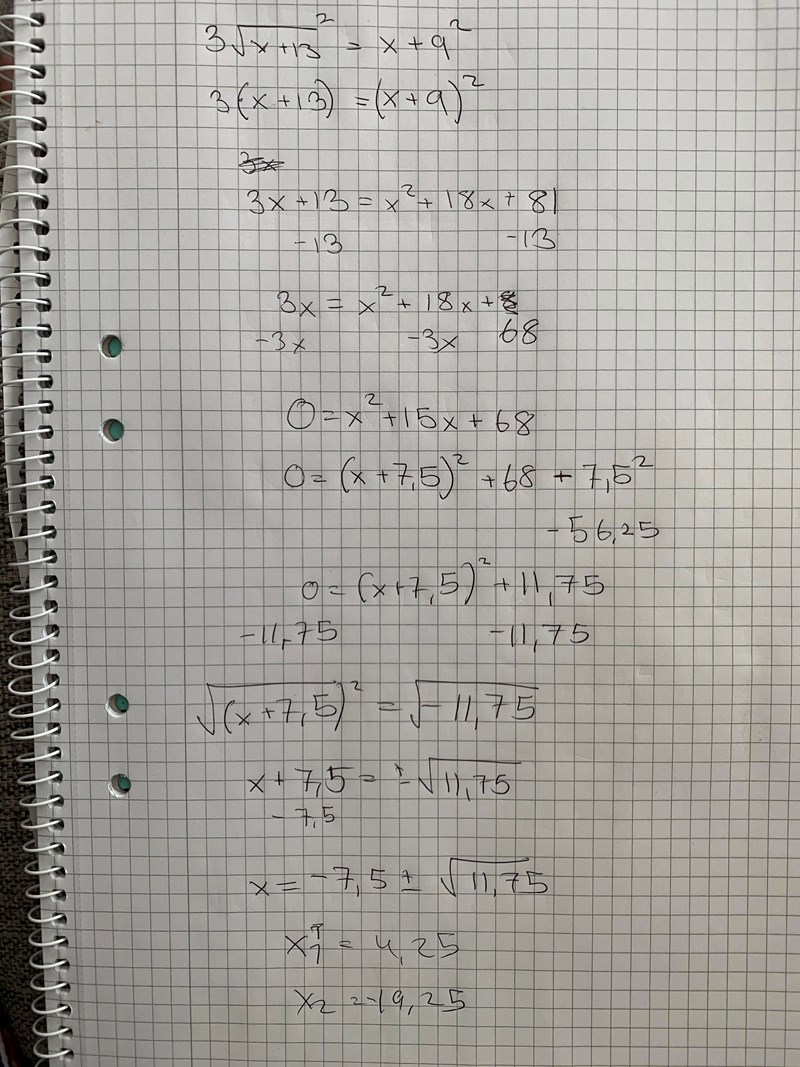 3√x+13² = x+9²
3(x+13) = (x+9)²
3x
3x+13 = x²+18x+81
-13 -13
3x = x²+18x+8
-3x -3x 68
0=x²+15x+68
0=(x+7,5)²+68+7,5²
-56,25
0=(x+7,5)²+11,75
-11,75 -11,75
√(x+7,5)² = √-11,75
x+7,5=±√11,75
-7,5
x=-7,5±√11,75
x₁ = 4,25
x₂ = -19,25